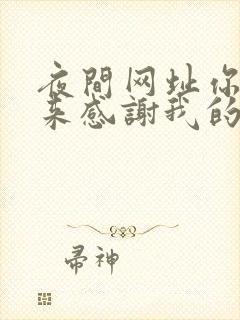 夜間网址你
来感謝我的
帚神